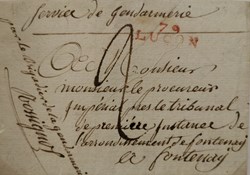 Service de Gendarmerie
79
LUÇON
A Monsieur
monsieur le procureur
impérial près le tribunal
de première instance de
l'arrondissement de fontenay
a fontenay
par le Brigadier de la gendarmerie